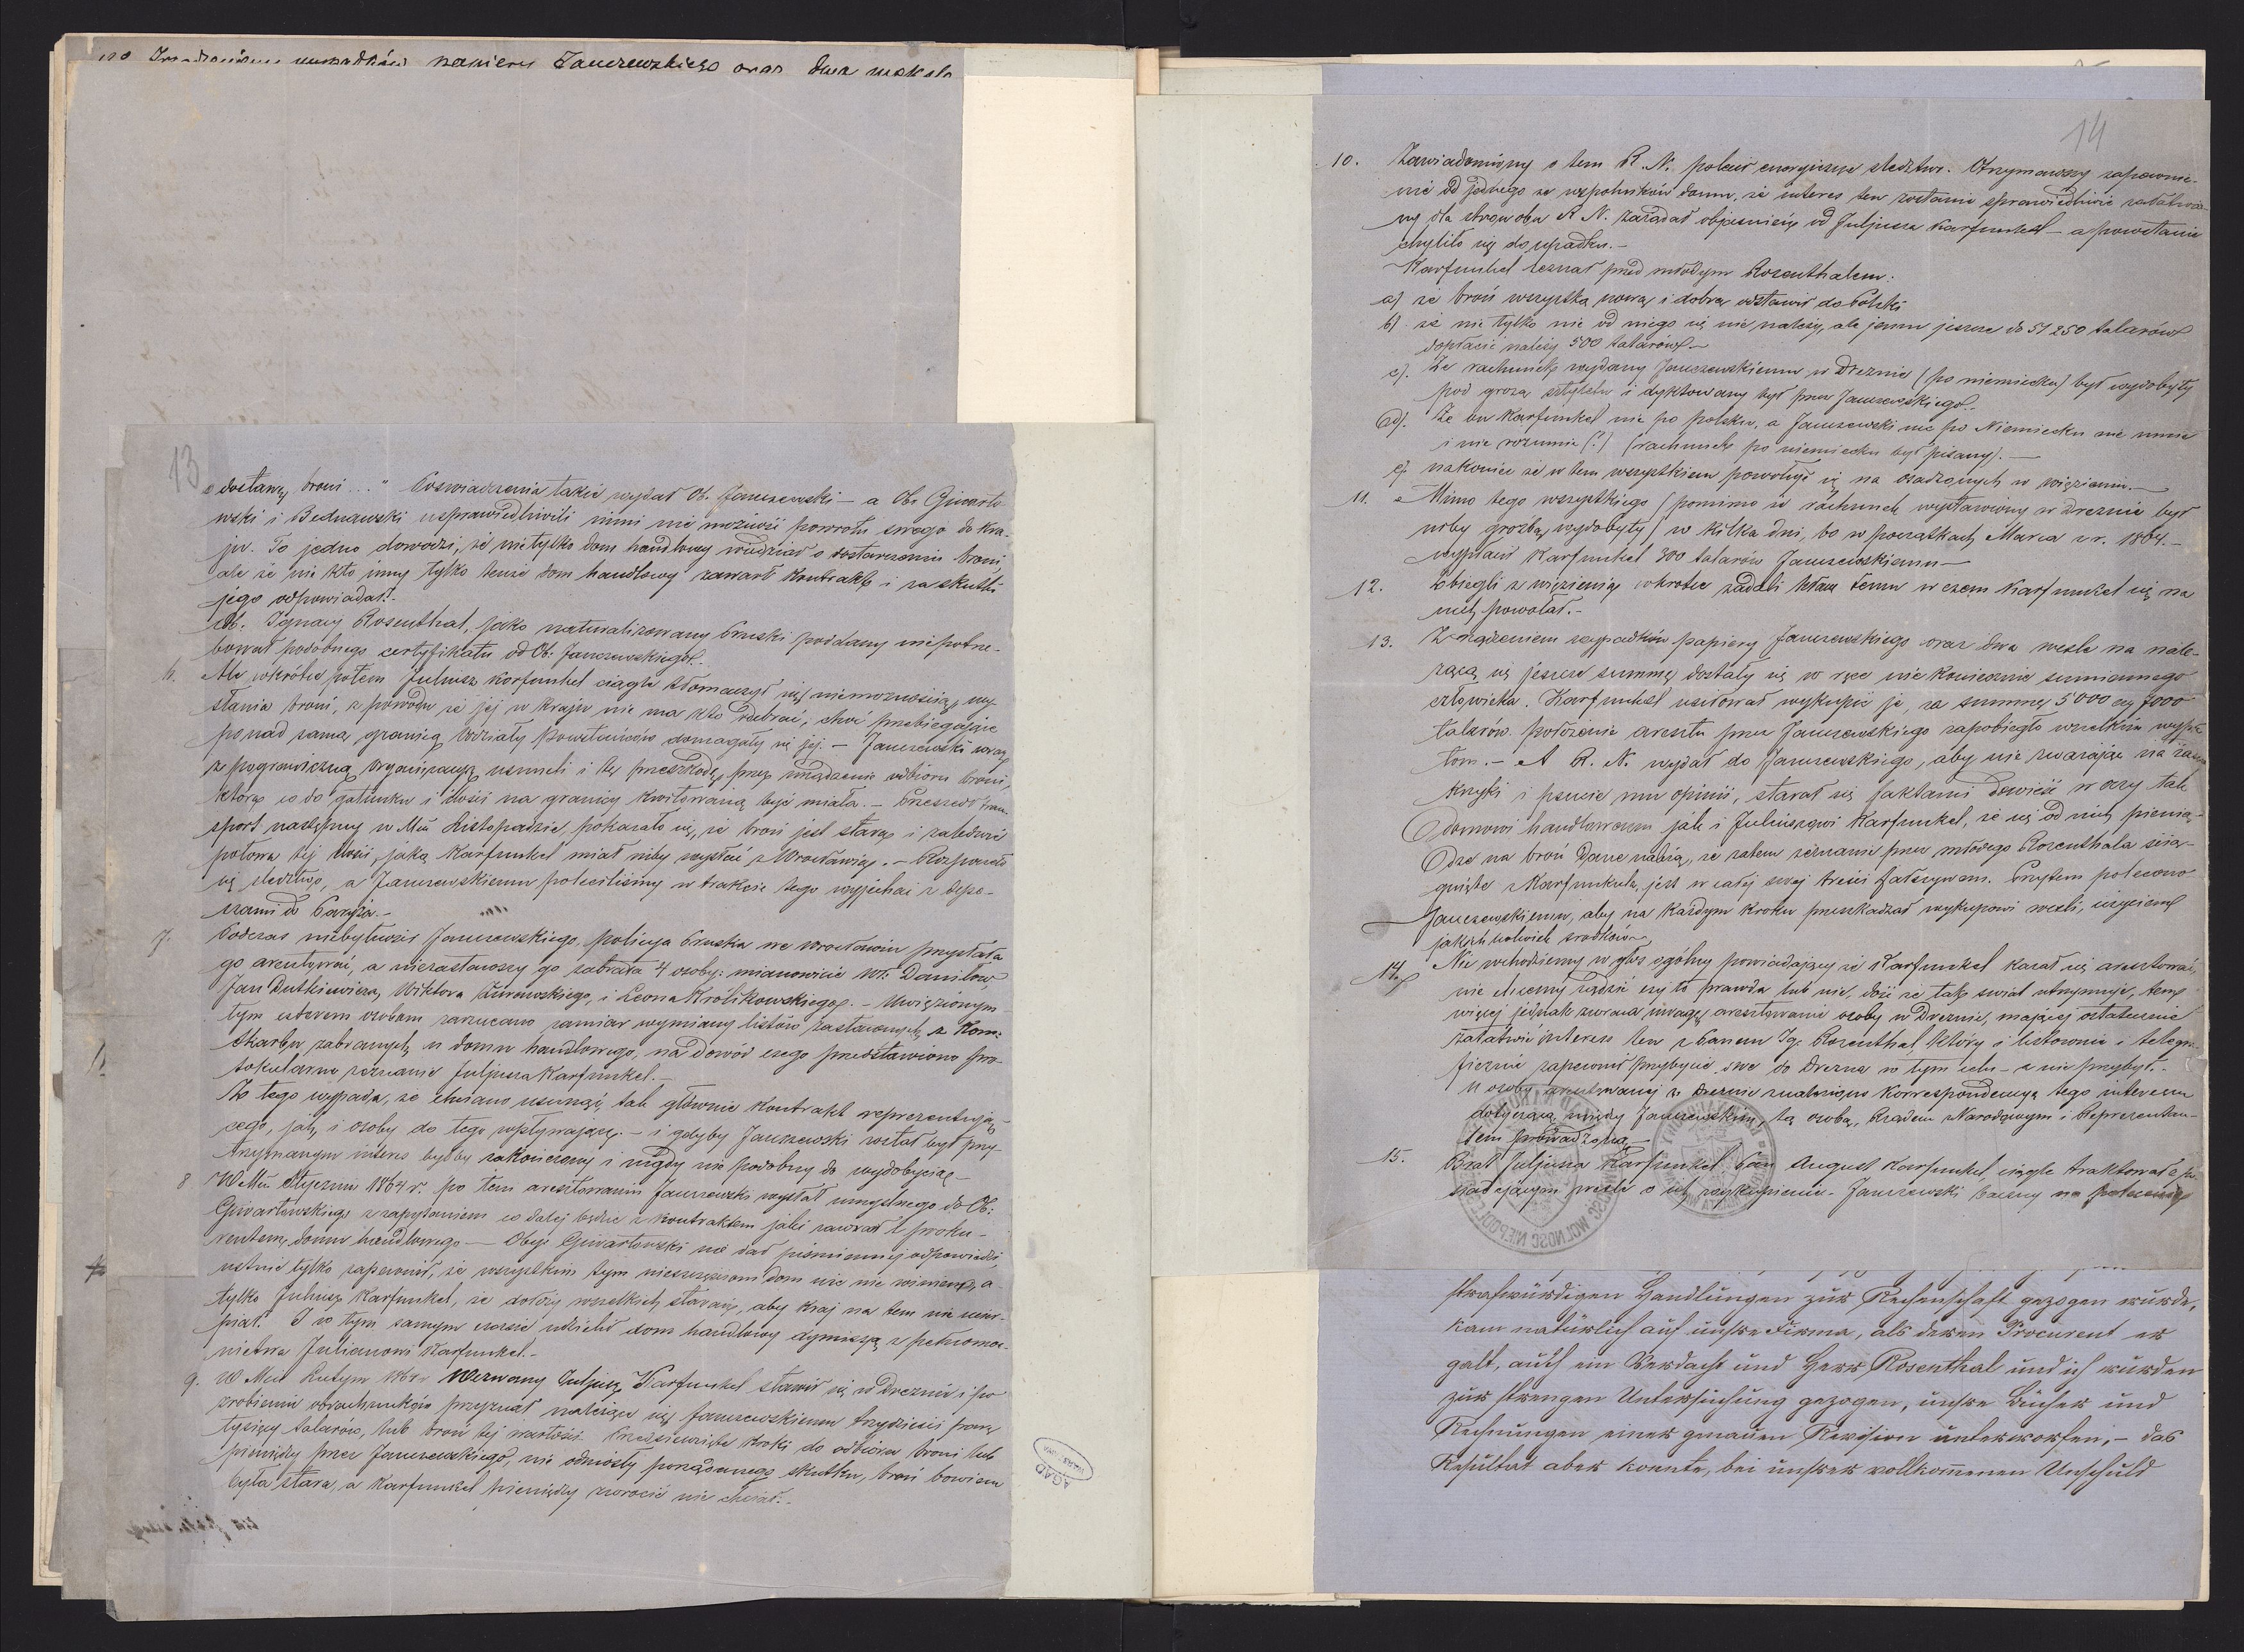 Zawczewskiego oraz dwa
13
dostawę broni ..." Poswiadczenia takie wydał Ob. Janczewski – a Ob. Giwarto-
wski i Bednawski usprawiedliwili nimi nie możność powrotu swego do kra-
ju. To jedno dowodzi, że nietylko dom handlowy wiedział o dostarczaniu broni,
ale że nie kto inny tylko tenże dom handlowy zawarł kontrakt i za skutki
jego odpowiadał.-
Ob. Ignacy Rosenthal, jako naturalizowany Pruski poddany niepotrze-
bował podobnego certyfikatu od Ob. Janczewskiego.-
Ale wkrótce potem Juliusz Karfunkel ciągle tłomaczył się niemożnością wy-
słania broni, z powodu że jej w kraju nie ma kto odebrać, choć przebiegające
ponad samą granicą oddziały powstańców domagały się jej. – Janczewski wraz
z pograniczną organizacyą usunęli i tę przeszkodę przez urządzenie odbioru broni,
która co do gatunku i ilości na granicy kwitowaną być miała. – Przeszedł tran-
sport następny w Mcu Listopadzie, pokazało się, że broń jest stara i zaledwie
połowa tej ilości, jaką Karfunkel miał niby wysłać z Wrocławia. – Rozpoczęto
się śledztwo, a Janczewskiemu poleciliśmy w trakcie tego wyjechać z depe-
szami do Paryża.-
7. Podczas niebytności Janczewskiego, policya Pruska we Wrocławiu przysłała
go aresztować, a niezastawszy go zabrała 4 osoby: mianowicie Wł. Daniłow
Jan Dutkiewicza, Wiktora Żurowskiego, i Leona Królikowskiego. – Uwięzionym
tym czterem osobom zarzucano zamiar wymiany listów zastawnych, z Kom:
Skarbu zabranych, u domu handlowego, na dowód czego przedstawiono pro-
tokularne zeznanie Juljusza Karfunkel.-
Z tego wypada, że chciano usunąć, tak głównie kontrakt reprezentują-
cego, jak, i osoby do tego wpływające. – i gdyby Janczewski został był przy-
trzymanym interes byłby zakończony i nigdy nie podobny do wydobycia.-
8 W Mcu Styczniu 1864 r. po tem aresztowaniu Janczewski wysłał umyślnego do Ob:
Giwartowskiego z zapytaniem co dalej będzie z kontraktem jaki zawarł z proku-
rentem domu handlowego – Obyw Giwartowski nie dał piśmiennej odpowiedzi,
ustnie tylko zapewnił, że wszystkim tym nieszczęściom dom nic nie winien, a
tylko Juliusz Karfunkel, że dołoży wszelkich starań, aby kraj na tem nie ucier-
piał. I w tym samym czasie udzielił dom handlowy dymissyą z pełnomoc-
nictwa Julianowi Karfunkel.-
9. W Mcu Lutym 1864 r Wezwany Juljusz Karfunkel stawił się w Dreznie i po
zrobieniu obrachunków przyznał należące się Janczewskiemu trzydzieści parę
tysięcy talarów, lub broń tej wartości. Przedsięwzięte kroki do odbioru broni lub
pieniędzy przez Janczewskiego, nie odniosły porządanego skutku, broń bowiem
była stara, a Karfunkel pieniędzy zwrócić nie chciał.-
14
10. Zawiadomiony o tem R. N. polecił energiczne śledztwo. Otrzymawszy zapewnie-
nie od jednego ze wspólników domu, że interes ten zostanie sprawiedliwie załatwio-
ny dla stron obu R N. zażądał objaśnienia od Juljusza Karfunkel – a powstanie
chyliło się do upadku.-
Karfunkel zeznał przed młodym Rosenthalem.
a) że broń wszystką nową i dobrą odstawił do Polski
b) że nie tylko nic od niego się nie należy, ale jemu jeszcze do 51250 talarów
dopłacić należy 500 talarów.-
c). Że rachunek wydany Janczewskiemu w Dreznie (po niemiecku) był wydobyty
pod grozą sztyletu i dyktowany był przez Janczewskiego.-
d). Że on Karfunkel nie po polsku, a Janczewski nic po Niemiecku nie umie
i nie rozumie (?) (rachunek po niemiecku był pisany). –
e) nakoniec że w tem wszystkiem powołuje się na osadzonych w więzieniu.-
11. Mimo tego wszystkiego (pomimo że rachunek wystawiony w Dreznie był
niby groźbą wydobyty) w kilka dni, bo w początkach Marca r. 1864.-
wypłacił Karfunkel 300 talarów Janczewskiemu –
12. Zbiegli z więzienia wkrótce zadali kłam temu w czem Karfunkel się na
nich powołał.-
13. Zrządzeniem wypadków papiery Janczewskiego oraz dwa wexle na nale-
żącą się jeszcze summę dostały się w ręce nie koniecznie sumiennego
człowieka. Karfunkel usiłował wykupić je, za summę 5000 czy 7000
talarów. położenie aresztu przez Janczewskiego zapobiegło wszelkim wypła-
tom. – A R. N. wydał do Janczewskiego, aby nie zważając na
krzyki i psucie mu opinii, starał się faktami dowieść w oczy tak
domowi handlowemu jak i Juliuszowi Karfunkel, że się od nich pienią-
dze na broń dane należą, że zatem zeznanie przez młodego Rosenthala ścią-
gnięte z Karfunkla, jest w całej swej treści fałszywem. Przytem polecono
Janczewskiemu, aby na każdym kroku przeszkadzał wykupowi wexli, użyciem
jakichkolwiek środków.-
14. Nie wchodziemy w głos ogólny powiadający że Karfunkel kazał się aresztować,
nie chcemy sądzić czy to prawda lub nie, dość że tak świat utrzymuje, tem
więcej jednak zwraca uwagę aresztowanie osoby w Dreznie, mającej ostatecznie
załatwić interess ten z Panem Ig. Rosenthal, który i listownie i telegra-
ficznie zapewnił przybycie swe do Drezna w tym celu – a nie przybył.-
U osoby aresztowanej w Dreznie znaleziono korrespondencyą tego interesu
dotyczącą między Janczewskim, tą osobą, Rządem Narodowym i Reprezentan-
tem prowadzoną.-
15. Brat Juljusza Karfunkel Pan August Karfunkel, ciągle traktował z po-
siadającym wexle o ich wykupienie. Janczewski baczny na polecenie
strafwürdigen Handlungen zur Rechenschaft gezogen wurde,
kam natürlich auf unsre Firma, als deren Procurent er
galt, auch ein Verdacht und Herr Rosenthal und ich wurden
zur strengen Untersuchung gezogen, unsre Bücher und
Rechnungen einer genauen Revision unterworfen, – das
Resultat aber konnte, bei unsrer vollkommenen Unschuld
AGAD